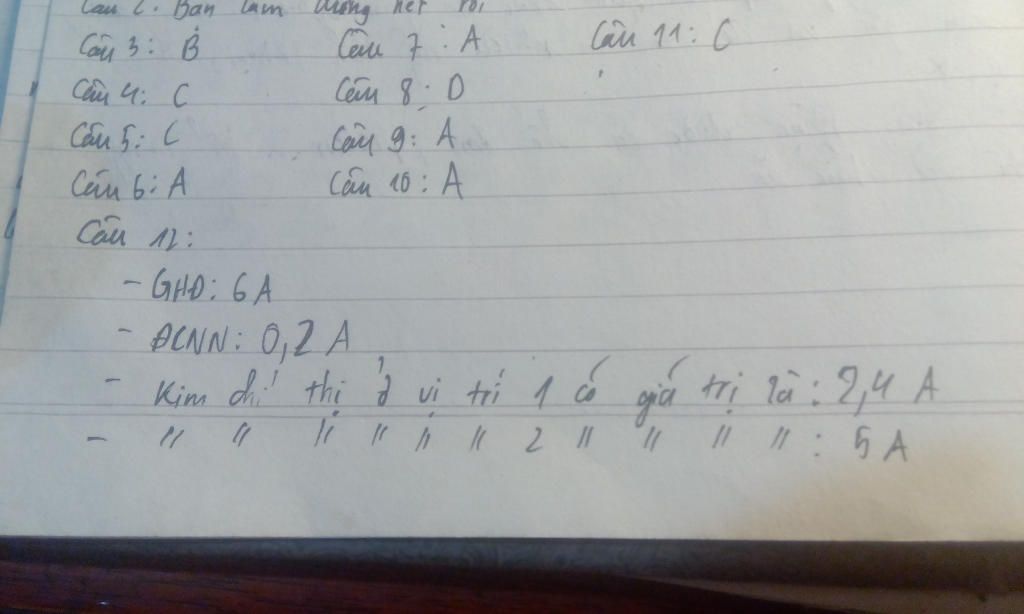 Câu 2: Bạn làm đúng hết rồi
Câu 3: B Câu 7: A Câu 11: C
Câu 4: C Câu 8: D
Câu 5: C Câu 9: A
Câu 6: A Câu 10: A
Câu 12:
- GHĐ: 6 A
- ĐCNN: 0,2 A
- Kim chỉ thị ở vị trí 1 có giá trị là: 2,4 A
- " " " " " " 2 " " " " : 5 A